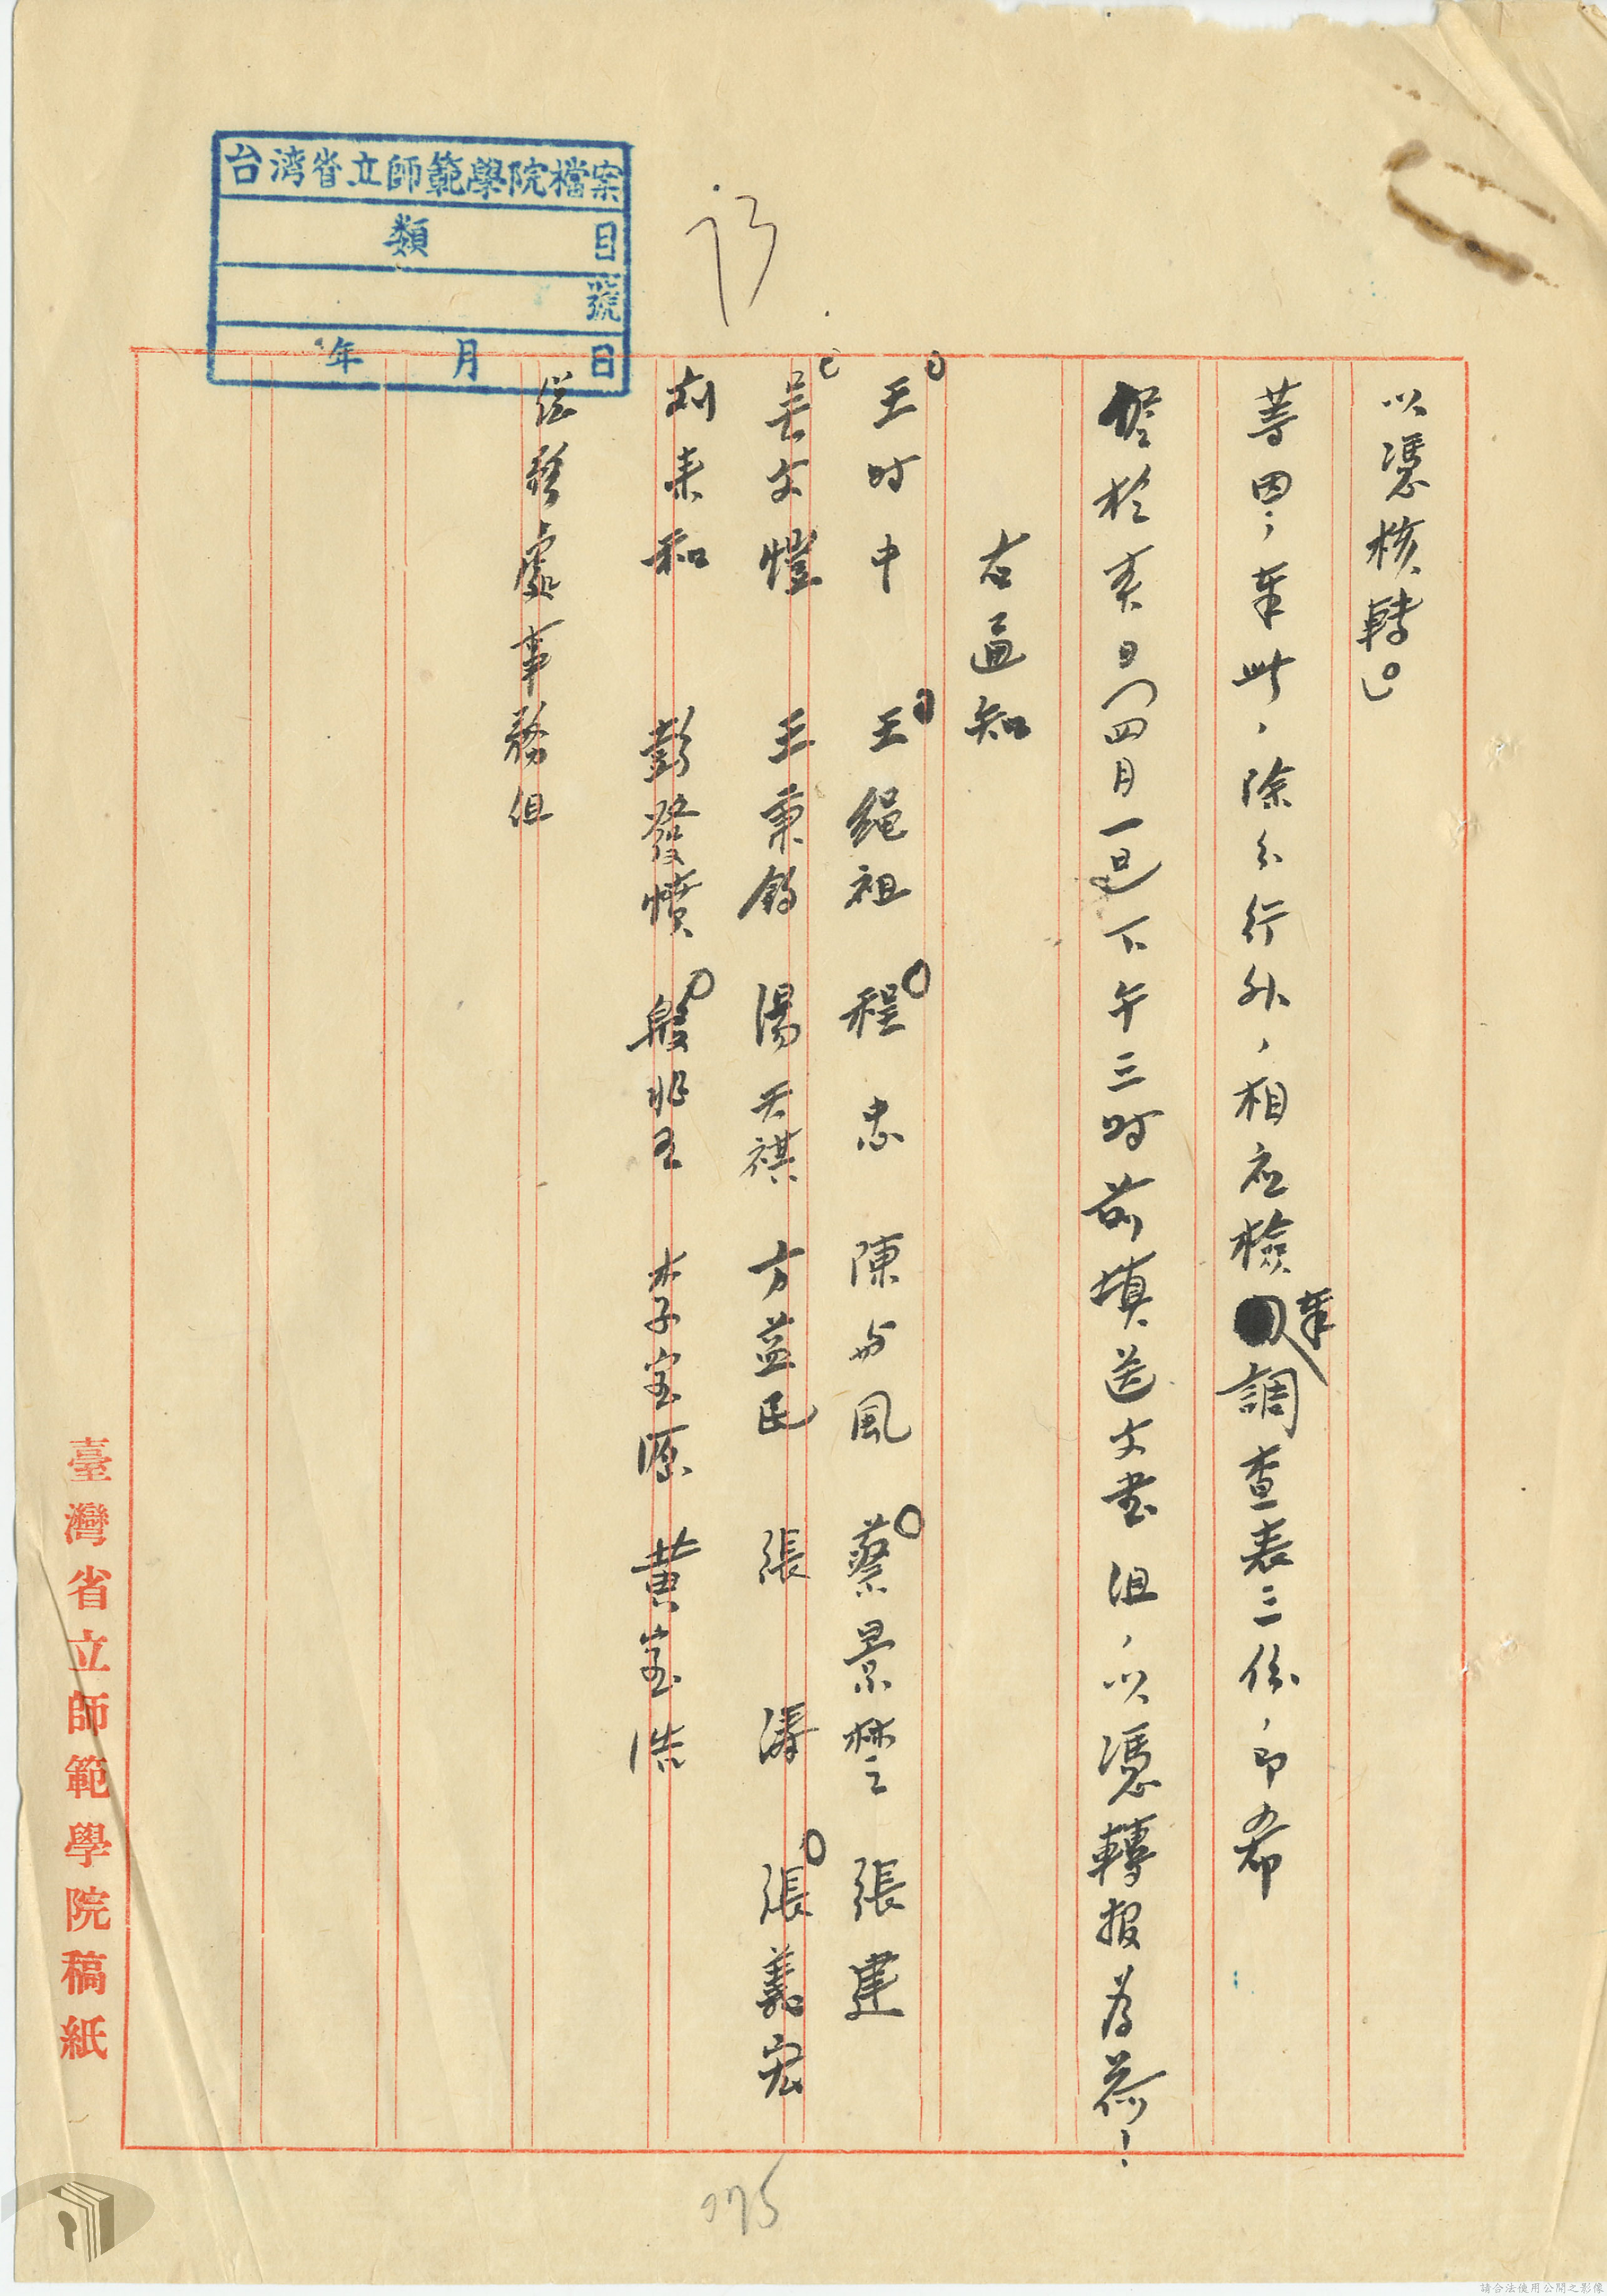 以憑核轉。」
等因,奉此,除分行外,相应檢奉調查表三份,即希
於 日(四月一日)下午三时前填送文書组,以憑轉报為荷!
右通知
王时中 王绳祖 程忠 陳与風 蔡景楚 張建
吴文愷 王秉鈞 湯天祺 方益民 張濤 張義宏
刘来和 彭發憤 殷兆 李宝源 黄宝浩
总務處事務组
台湾省立師範學院檔案
類 目
號
年 月 日
臺灣省立師範學院稿紙
075
請合法使用公開之影像